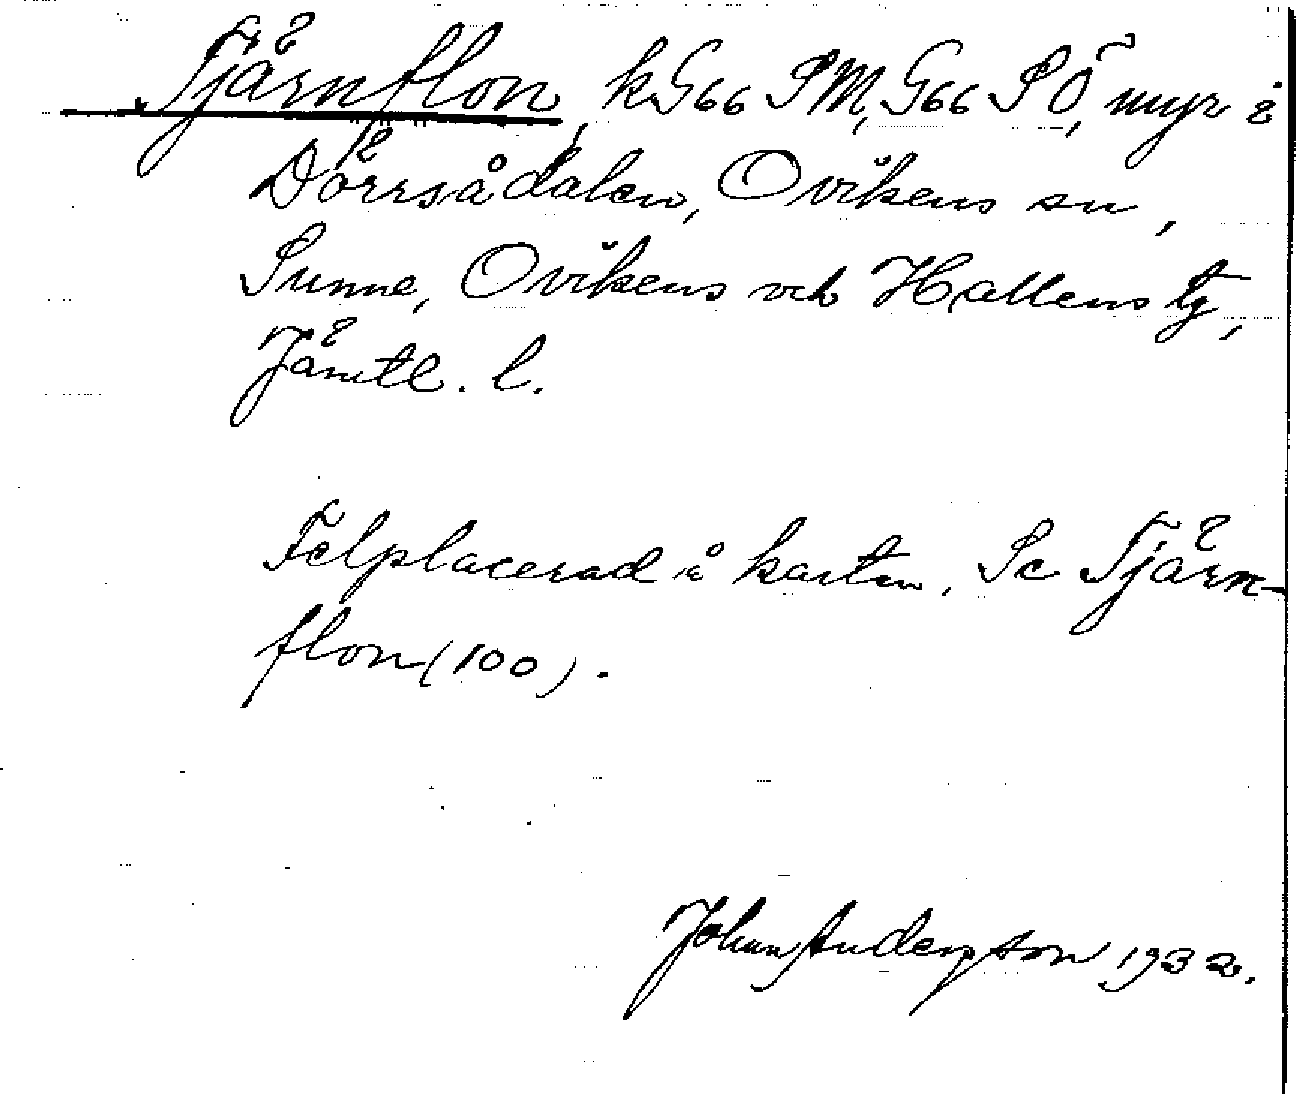 Tjärnflon, k G66 SM, G66 SÖ, myr i
Dörrsådalen, Ovikens sn,
Sunne, Ovikens och Hallens tg,
Jämtl. l.
Felplacerad å kartan. Se Tjärn-
flon (100).
Johan Anderson 1932.